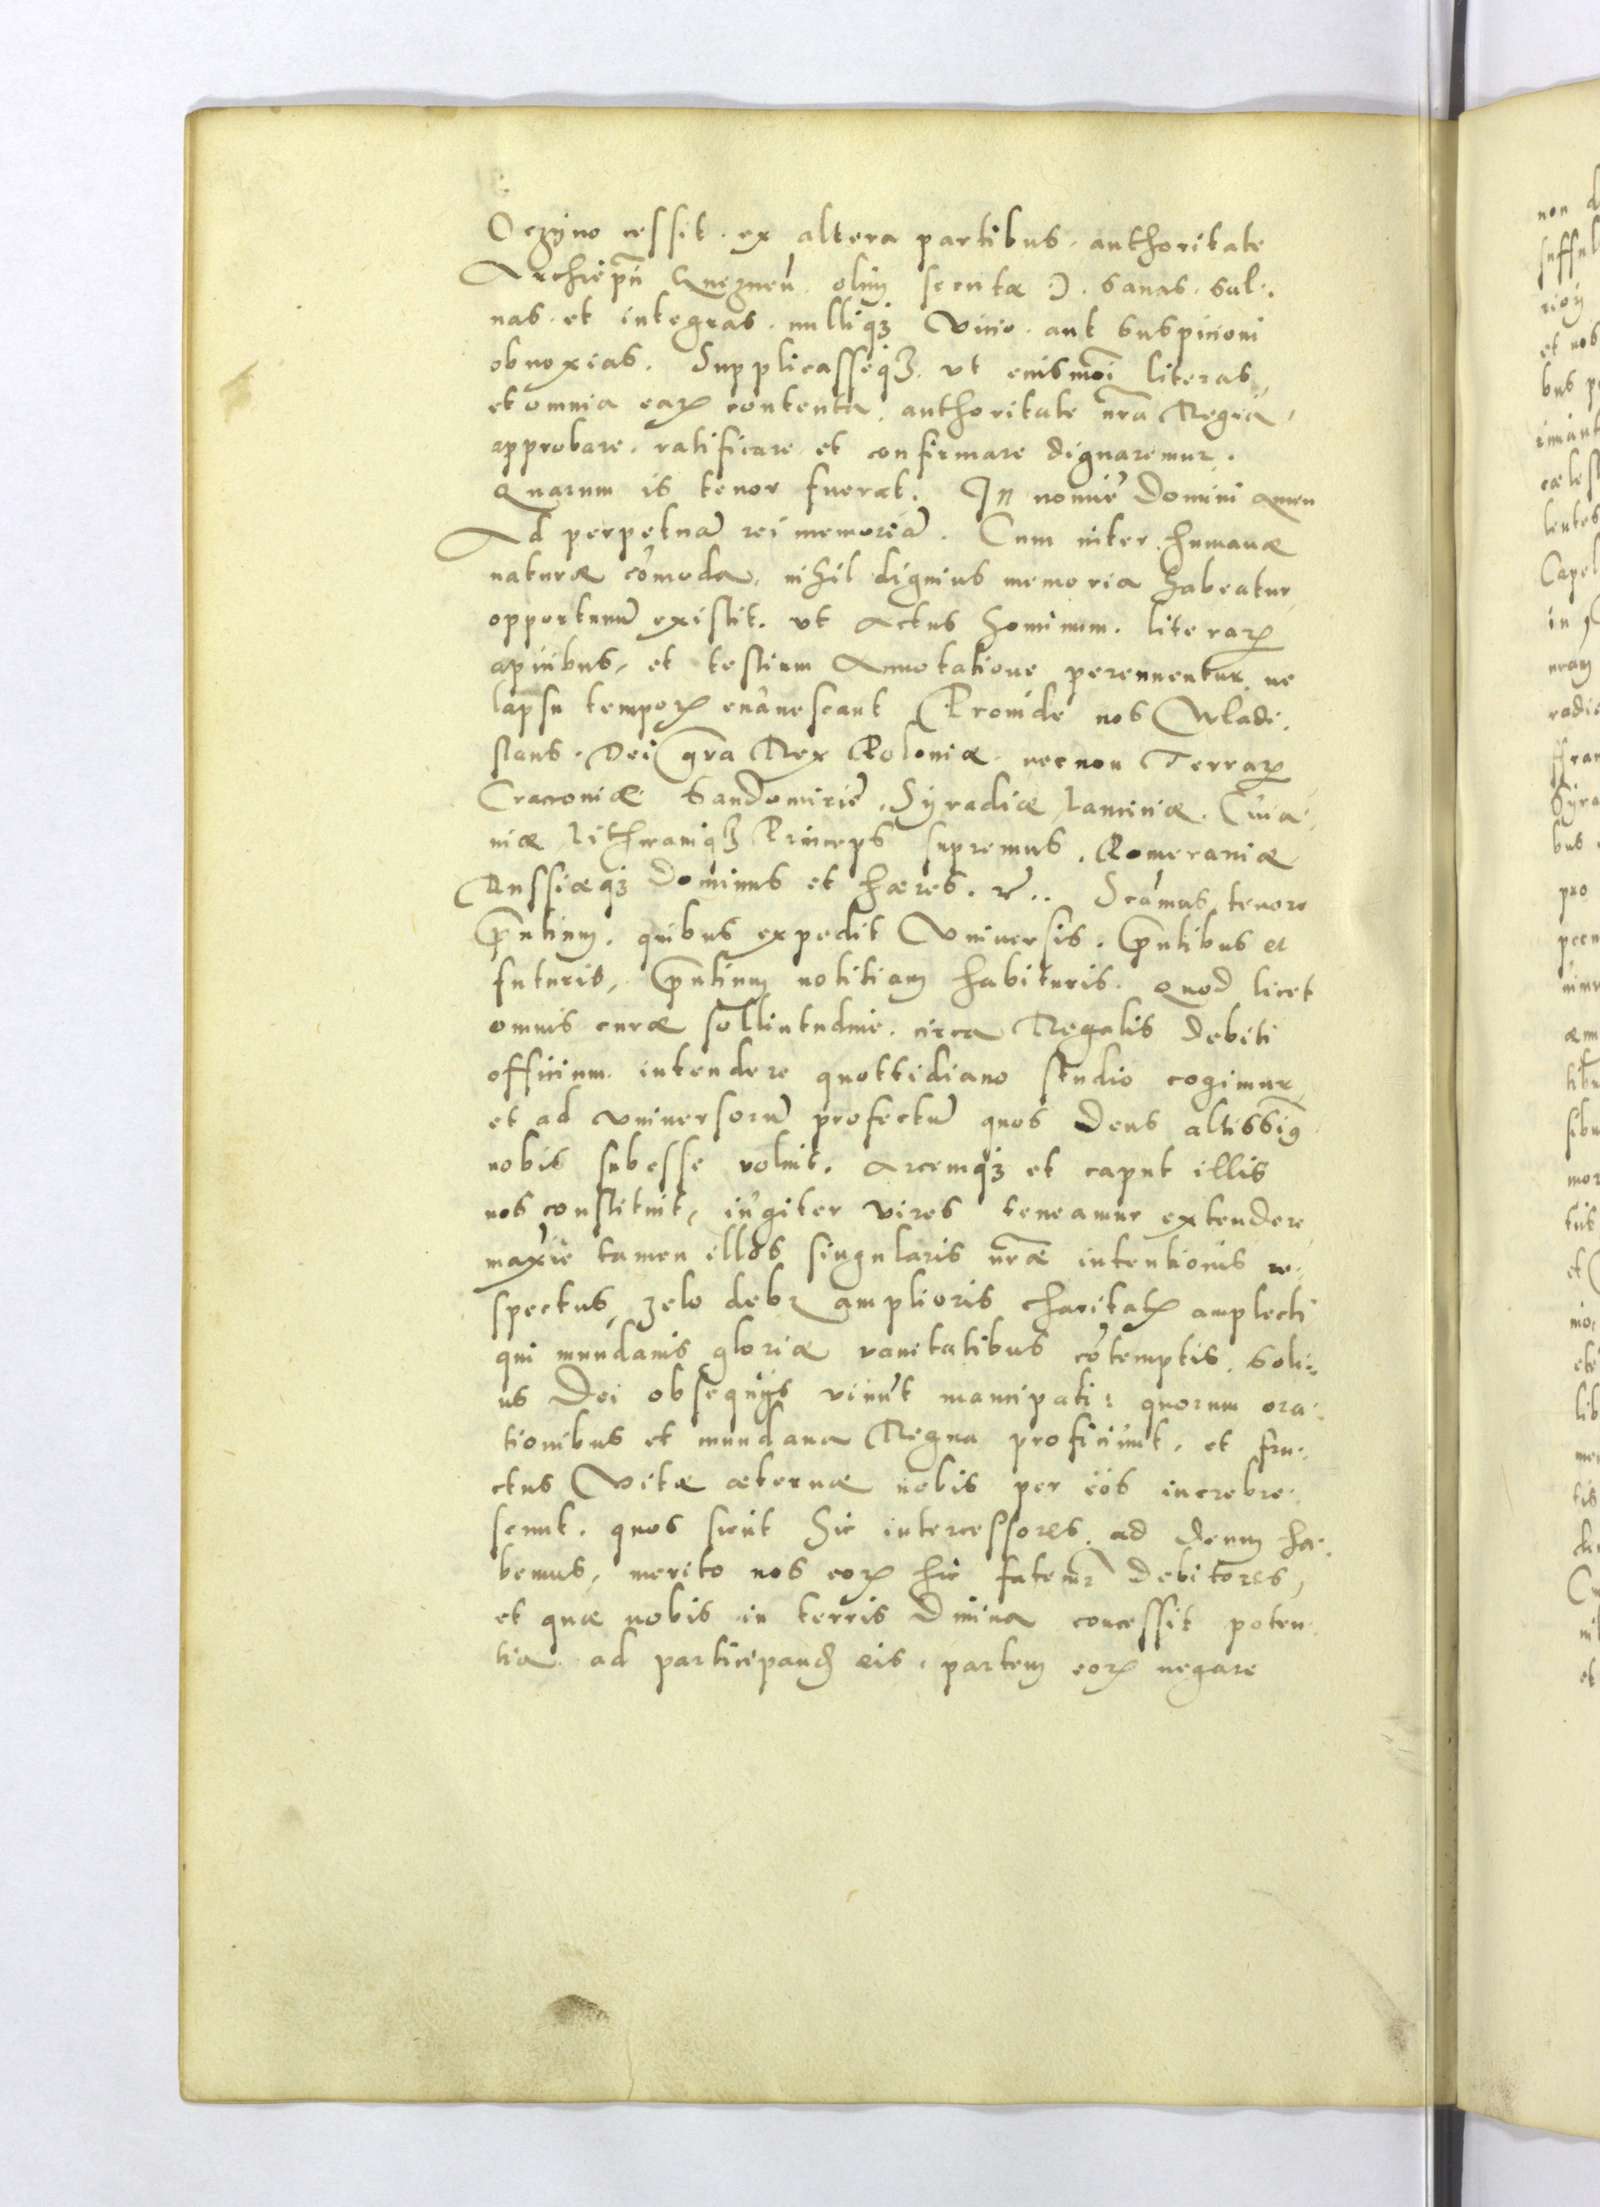 Oczyno cessit. ex altera partibus. authoritate
Archiepñ Gnezneñ. olim secuta ). sanas. sal.
nas. et integras. nulliqꝫ vicio. aut suspicioni
obnoxias. Supplicasseqꝫ. ut eiusmõi literas,
et omnia eaꝝ contenta, authoritate ñra Regia,
approbare. ratificare et confirmare dignaremur.
Quarum is tenor fuerat. In nomiē Domini Amen
Ad perpetuā rei memoriā. Cum inter humanæ
naturæ cōmoda, nihil dignius memoria habeatur
opportunū existit. ut Actus hominum. literaꝝ
apicibus, et testium Annotatione perennentur. ne
lapsu tempoꝝ evanescant Proinde nos Wladi.
slaus. Dei gr̃a Rex Poloniæ. necnon Terraꝝ
Cracoviæ. Sandomiriē. Syradiæ, Lanciciæ. Cuia-
viæ Lithvaniqꝫ Princeps supremus, Pomeraniæ
Russiæqꝫ Dominus et hæres. ꝛc̃.. Scāmus, tenore
p̃ntium. quibus expedit Universis. p̃ntibus et
futuris, p̃ntium notitiam habituris. quod licet
omnis curæ sollicitudine. circa Regalis debiti
officium intendere quottidiano studio cogimur
et ad universorū profectū quos Deus altissim̃ꝰ
nobis subesse voluit. Arcemqꝫ et caput illis
nos constituit, iugiter vires teneamur extendere
maxīe tamen illos singularis ñræ intentionis re-
spectus, zelo debꝫ amplioris charitatꝭ amplecti
qui mundanis gloriæ vanitatibus cōtemptis. soli-
us Dei obsequijs vivūt mancipati: quorum ora-
tionibus et mundana Regna proficiūt, et fru-
ctus Vitæ æternæ nobis per eos increbre-
scunt. quos sicut hic intercessores, ad Deum ha-
bemus, merito nos eoꝝ hic fatemꝛ debitores,
et quæ nobis in terris Divina concessit poten-
tia. ad participand̃ eis. partem eoꝝ negare